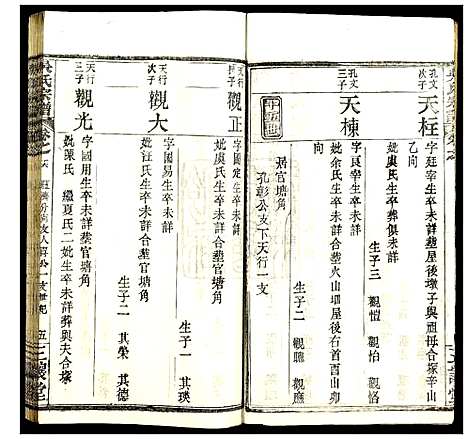 孔文次子
天柱
字廷宰生卒未詳塟屋後墩子與祖母合冢辛山
乙向
妣虞氏生卒葬俱未詳
生子三 觀愷 觀怡 觀恪
孔文三子
天棟
字良宰生卒未詳
妣余氏生卒未詳合塟火山堌屋後右首酉山卯
向
生子二 觀聰 觀應
十五世
居官塘角
孔彰公支下天行一支
天行長子
觀正
字國定生卒未詳
妣虞氏生卒未詳合塟官塘角
生子一 其瑛
天行次子
觀大
字國易生卒未詳
妣汪氏生卒未詳合塟官塘角
生子二 其榮 其德
天行三子
觀光
字國用生卒未詳塟官塘角
妣渠氏 繼夏氏二妣生卒未詳葬與夫合塚
吳氏宗譜
卷之六
五
三讓堂